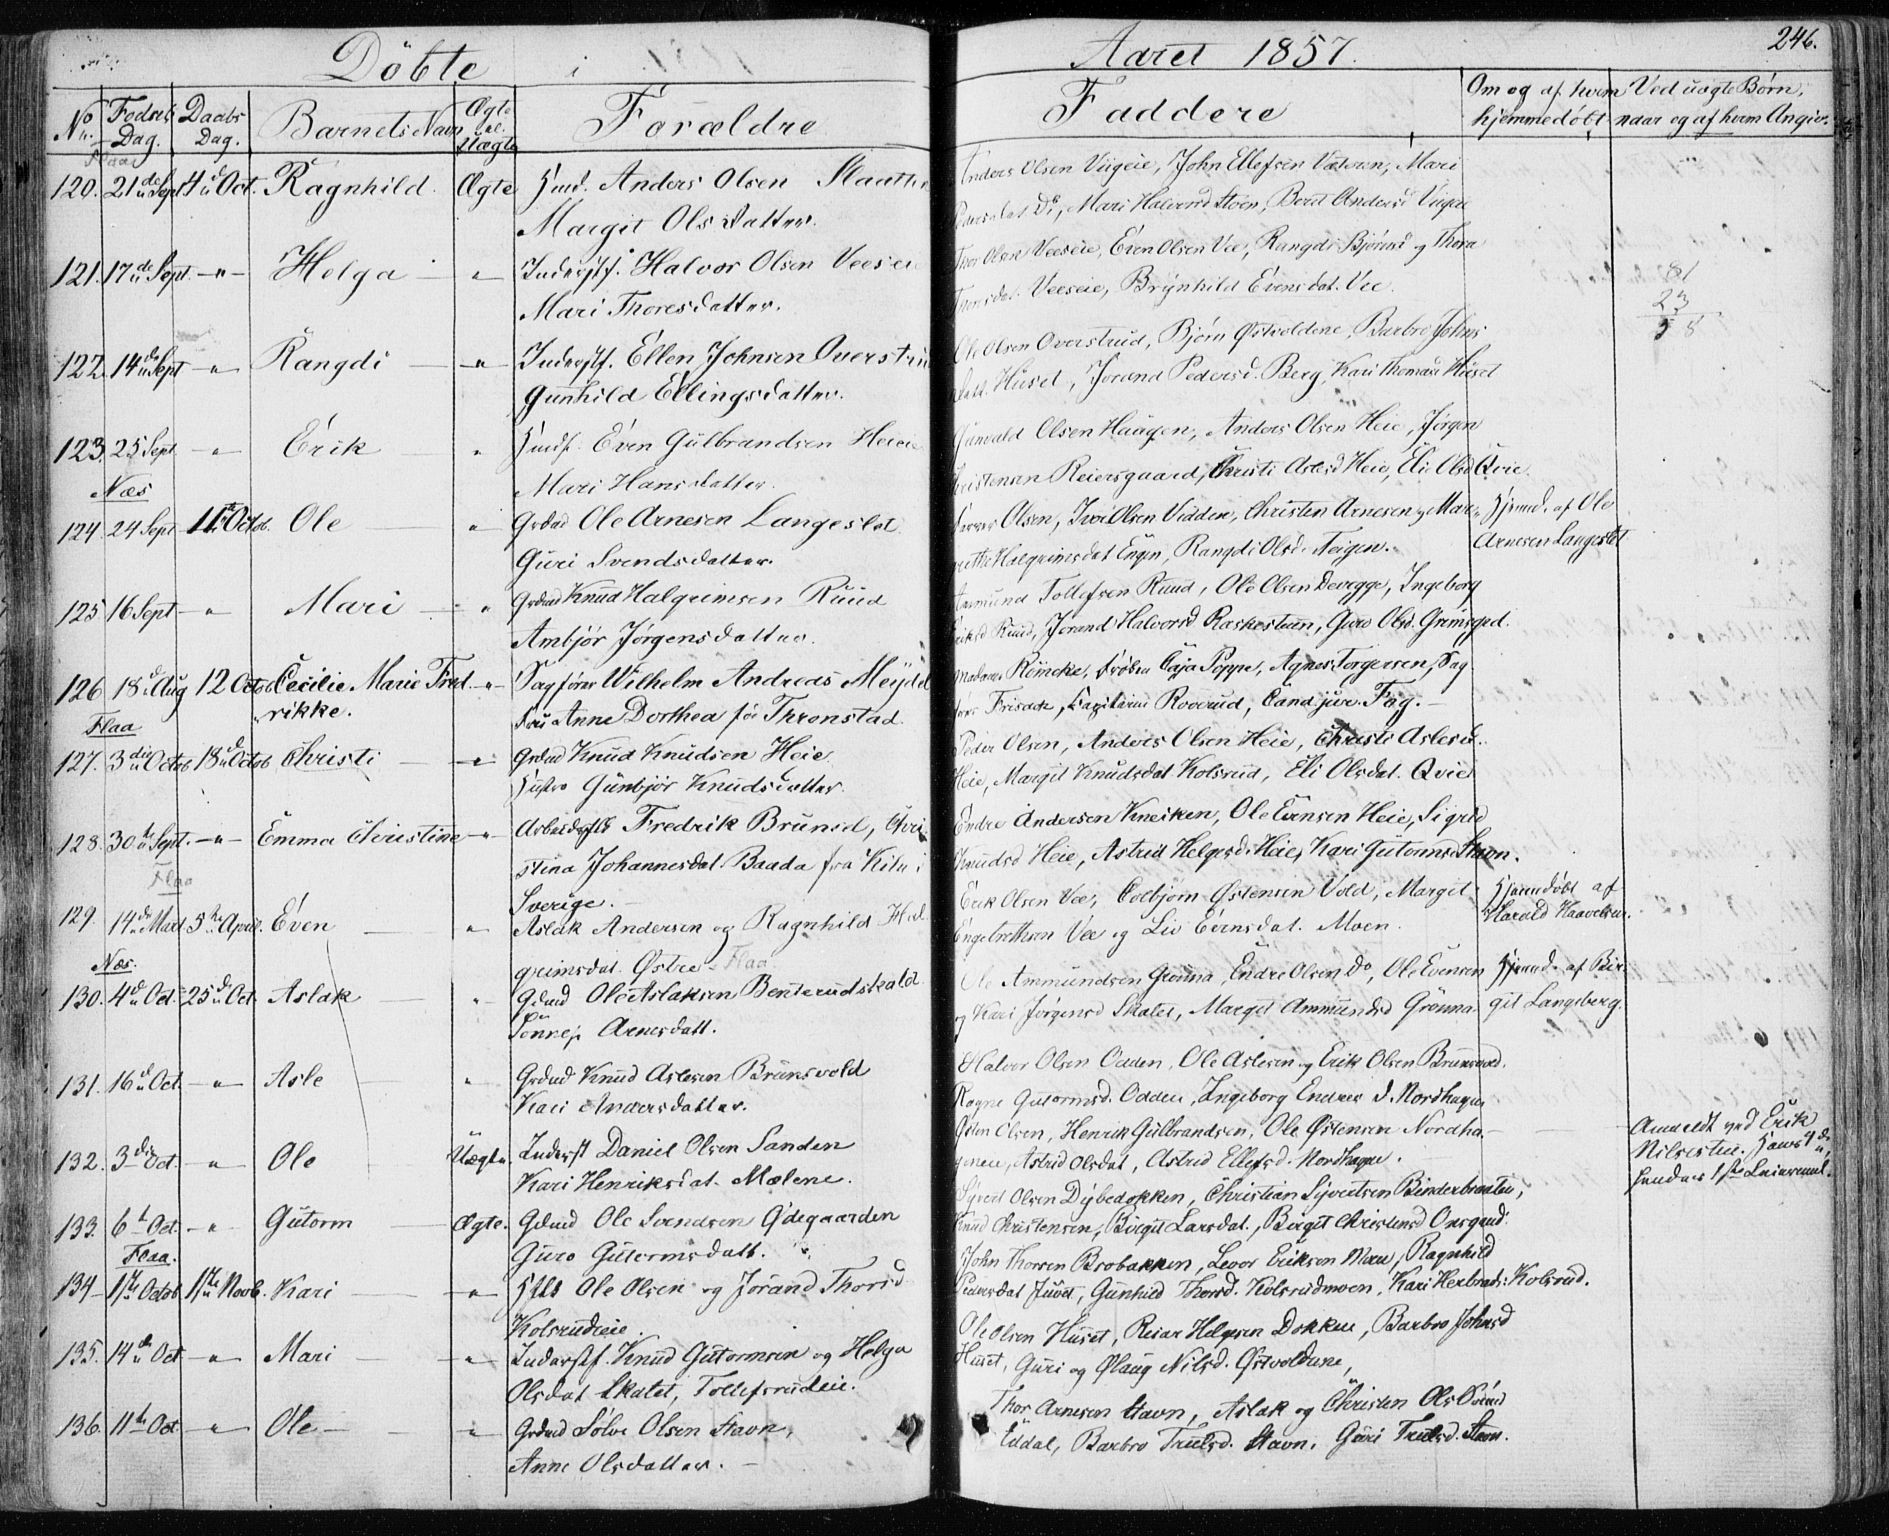 Döbte i Aaret 1857. 246.
No Fødsels Dag. Daabs Dag. Barnets Navn Ægte el. Uægte Forældre Faddere Om og af hvem hjemmedøbt Ved uægte Børn, naar og af hvem Angiv.
Flaa
120. 21de Sept 4de Oct. Ragnhild Ægte Anders Olsen
Margit Olsdatter.
Anders Olsen Viigeie, John Ellefsen Mari
Do, Mari Halvorsd Steen, Berit Andersd Viigeie
121. 17de Sept. -"- Helga " Inderstf. Halvor Olsen Veeseie
Mari Thoresdatter.
Thor Olsen Veeseie, Even Olsen Vee, Rangdi Bjørnsd og Thora
Thorsdat. Veeseie, Brynhild Evensdat. Vee.
81
23
58
122. 14de Sept -"- Rangdi -"- Inderstf. Ellen Johnsen Overstrud
Gunhild Ellingsdatter.
Ole Olsen Overstrud, Bjørn Østvoldene, Barbro Johns
datt. Huset, Jorand Pedersd. Berg, Kari Thomasd Huset
123. 25 Sept. -"- Erik " Even Gulbrandsen Heieie
Mari Hansdatter.
Gunvald Olsen Haagen, Anders Olsen Heie, Jørgen
Christensen Reiersgaard, Christi Aslesd Heie, Eli Olsd Qvie.
Næs
124. 24 Sept 11te Octob. Ole " Grdmd Ole Arnesen Langeslet
Guri Svendsdatter.
Olsen, Iver Olsen Vidden, Christen Arnesen og Mar-
grethe Halgrimsdat Engen, Rangdi Olsd. Teigen.
Hjemd. af Ole
Arnesen Langeslet
125 16 Sept -"- Mari " Grdmd Knud Halgrimsen Ruud
Ambjör Jørgensdatter.
Ammund Tollefsen Ruud, Ole Olsen Devegge, Ingeborg
Eriksd Ruud, Jorand Halvorsd Raskestuen, Guro Olsd. Grimsged.
126 18de Aug 12 Octob Cecilie Marie Fred- -"- Sagfører Wilhelm Andreas Meydell
rikke. Fru Anne Dorthea för Thronstad.
Madame Römcke, Frøken Caja Poppe, Agnes Torgersen, Sag
fører Frisak, Capitain Roverud, Cand jur. Fog.
Flaa
127. 3die Octob 18de Octob Christi -"- Grdmd Knud Knudsen Heie
Hustro Gunbjör Knudsdatter.
Peder Olsen, Anders Olsen Heie, Christi Aslesd.
Heie, Margit Knudsdat Kolsrud, Eli Olsdat. Qvie
128. 30te Sept. -"- Emma Christine -"- Fredrik Brunsd, Chri-
stina Johannesdat. Baada fra Kila i
Sverige.
Endre Andersen Kneiken, Ole Evensen Heie, Sigrid
Knudsd Heie, Astrid Helgesd. Heie, Kari Gutormsd. Stavn.
Flaa
129. 14de Mart 5te April. Even " Aslak Andersen og Ragnhild Hal-
grimsdat. Østre Flaa
Erik Olsen Vee, Colbjørn Østensen Vold, Margit
Engebrethsen Vee og Liv Evensdat. Moen.
Hjemdøbt af
Harald Haavelsen.
Næs.
130. 4de Oct. 25de Oct. Aslak " Grdmd Ole Aslaksen Benterudskald
Tönnes Arnesdatt.
Ole Ammundsen Grönna, Endre Olsen Do, Ole Evensen
og Kari Jørgensd Skalet, Margit Ammundsd Grönna.
Hjemd. af Bir-
git Langeberg.
131. 16de Oct. -"- Asle " Grdmd Knud Aslesen Brunsvold
Kari Andersdatter.
Halvor Olsen Odden, Ole Aslesen og Erik Olsen Brunsvold.
Ragne Gutormsd. Odden, Ingeborg Endresd. Nordhagen
132. 3die Oct. -"- Ole Uægte. Inderst Daniel Olsen Sanden
Kari Henriksdat. Mælene.
Østen Olsen, Henrik Gulbrandsen, Ole Østensen Nordha-
geneie, Astrid Olsdat, Astrid Ellefsd. Nordhagen.
Anmeldt ved Erik
Nilsestuen. Hans 4de
hendes 1ste Leiermaal.
133. 6te Oct. -"- Gutorm Ægte. Grdmd Ole Svendsen Ødegaarden
Guro Gutormsdatt.
Syvert Olsen Dybedokken, Christian Syvertsen Binderbraaten,
Knud Christensen, Birgit Larsdat., Birgit Christensd Onsgaard.
Flaa.
134 11te Octob 1ste Novb. Kari -"- Ole Olsen og Jörand Thorsd
Kolsrudeie.
John Thorsen Brobakken, Levor Eriksen Moen, Ragnhild
Pedersdat Juvet, Gunhild Thorsd. Kolsrudmoen, Kari Herbrands. Kolsrud.
135. 14de Oct -"- Mari -"- Inderstf. Knud Gutormsen og Helga
Olsdat Skalet, Tollefsrudeie.
Ole Olsen Huset, Reiar Helgesen Dokken, Barbro Johnsd
Huset, Guri og Øllaug Nilsd. Østvoldene,
136. 11te Oct -"- Ole -"- Grdmd Sølve Olsen Stavn,
Anne Olsdatter.
Thor Arnesen Stavn, Aslak og Christen Ols
Eddal, Barbro Trulsd. Stavn, Guri Trulsd. Stavn.